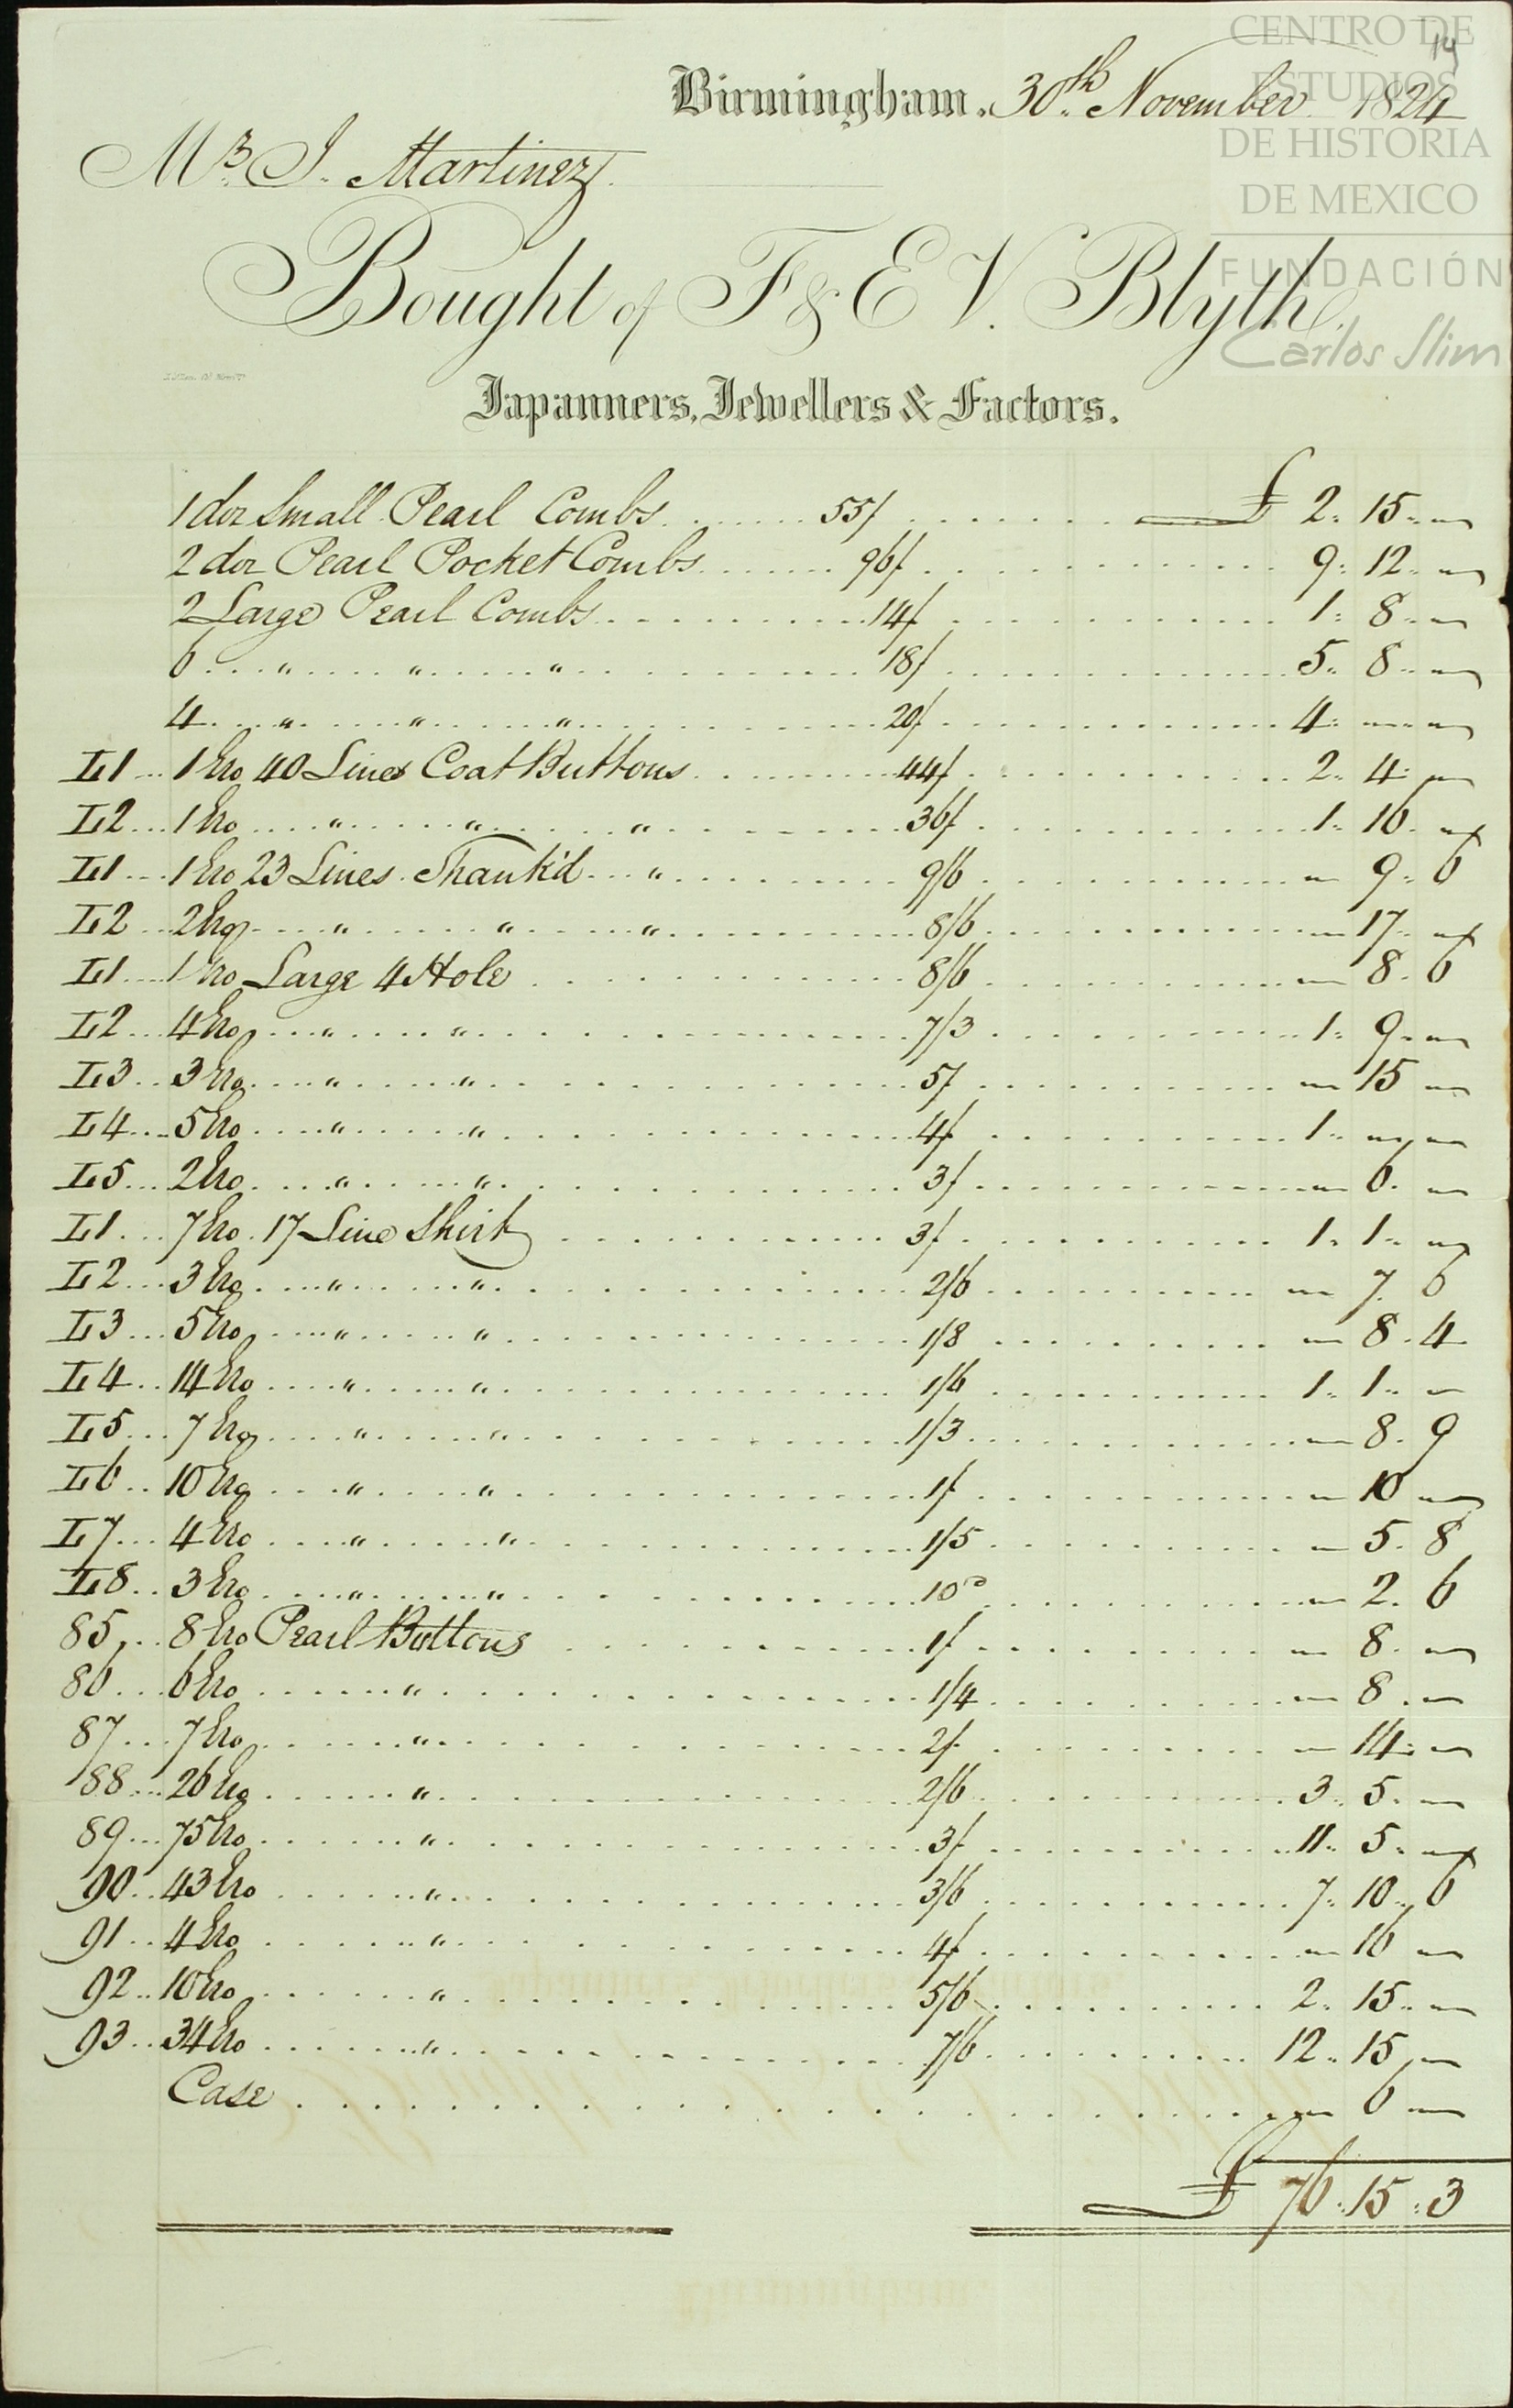 CENTRO DE
ESTUDIOS
DE HISTORIA
DE MEXICO
FUNDACIÓN
Carlos Slim
14
Birmingham. 30th November 1824
Mr. J. Martinez
Bought of F & E V. Blyth.
Japanners, Jewellers & Factors.
1 doz Small Pearl Combs ...... 55/ ...... £ 2 " 15 " —
2 doz Pearl Pocket Combs ...... 96/ ...... 9 " 12 " —
2 Large Pearl Combs ...... 14/ ...... 1 " 8 " —
6 ... " ... " ... " ...... 18/ ...... 5 " 8 " —
4 ... " ... " ... " ...... 20/ ...... 4 " — " —
L1 ... 1 Gro 40 Lines Coat Buttons ...... 44/ ...... 2 " 4 " —
L2 ... 1 Gro ... " ... " ... " ...... 36/ ...... 1 " 16 " —
L1 ... 1 Gro 23 Lines Shank'd ... " ...... 9/6 ...... — 9 " 6
L2 ... 2 Gro ... " ... " ... " ...... 8/6 ...... — 17 " —
L1 ... 1 Gro Large 4 Hole ...... 8/6 ...... — 8 " 6
L2 ... 4 Gro ... " ... " ...... 7/3 ...... 1 " 9 " —
L3 ... 3 Gro ... " ... " ...... 5/ ...... — 15 —
L4 ... 5 Gro ... " ... " ...... 4/ ...... 1 " — " —
L5 ... 2 Gro ... " ... " ...... 3/ ...... — 6 " —
L1 ... 7 Gro 17 Line Shirt ...... 3/ ...... 1 " 1 " —
L2 ... 3 Gro ... " ... " ...... 2/6 ...... — 7 " 6
L3 ... 5 Gro ... " ... " ...... 1/8 ...... — 8 " 4
L4 ... 14 Gro ... " ... " ...... 1/6 ...... 1 " 1 " —
L5 ... 7 Gro ... " ... " ...... 1/3 ...... — 8 " 9
L6 ... 10 Gro ... " ... " ...... 1/ ...... — 10 —
L7 ... 4 Gro ... " ... " ...... 1/5 ...... — 5 " 8
L8 ... 3 Gro ... " ... " ...... 10d ...... — 2 " 6
85 ... 8 Gro Pearl Buttons ...... 1/ ...... — 8 " —
86 ... 6 Gro ... " ...... 1/4 ...... — 8 " —
87 ... 7 Gro ... " ...... 2/ ...... — 14 " —
88 ... 26 Gro ... " ...... 2/6 ...... 3 " 5 " —
89 ... 75 Gro ... " ...... 3/ ...... 11 " 5 " —
90 ... 43 Gro ... " ...... 3/6 ...... 7 " 10 " 6
91 ... 4 Gro ... " ...... 4/ ...... — 16 —
92 ... 10 Gro ... " ...... 5/6 ...... 2 " 15 " —
93 ... 34 Gro ... " ...... 7/6 ...... 12 " 15 " —
Case ...... — 6 —
£ 76 " 15 " 3